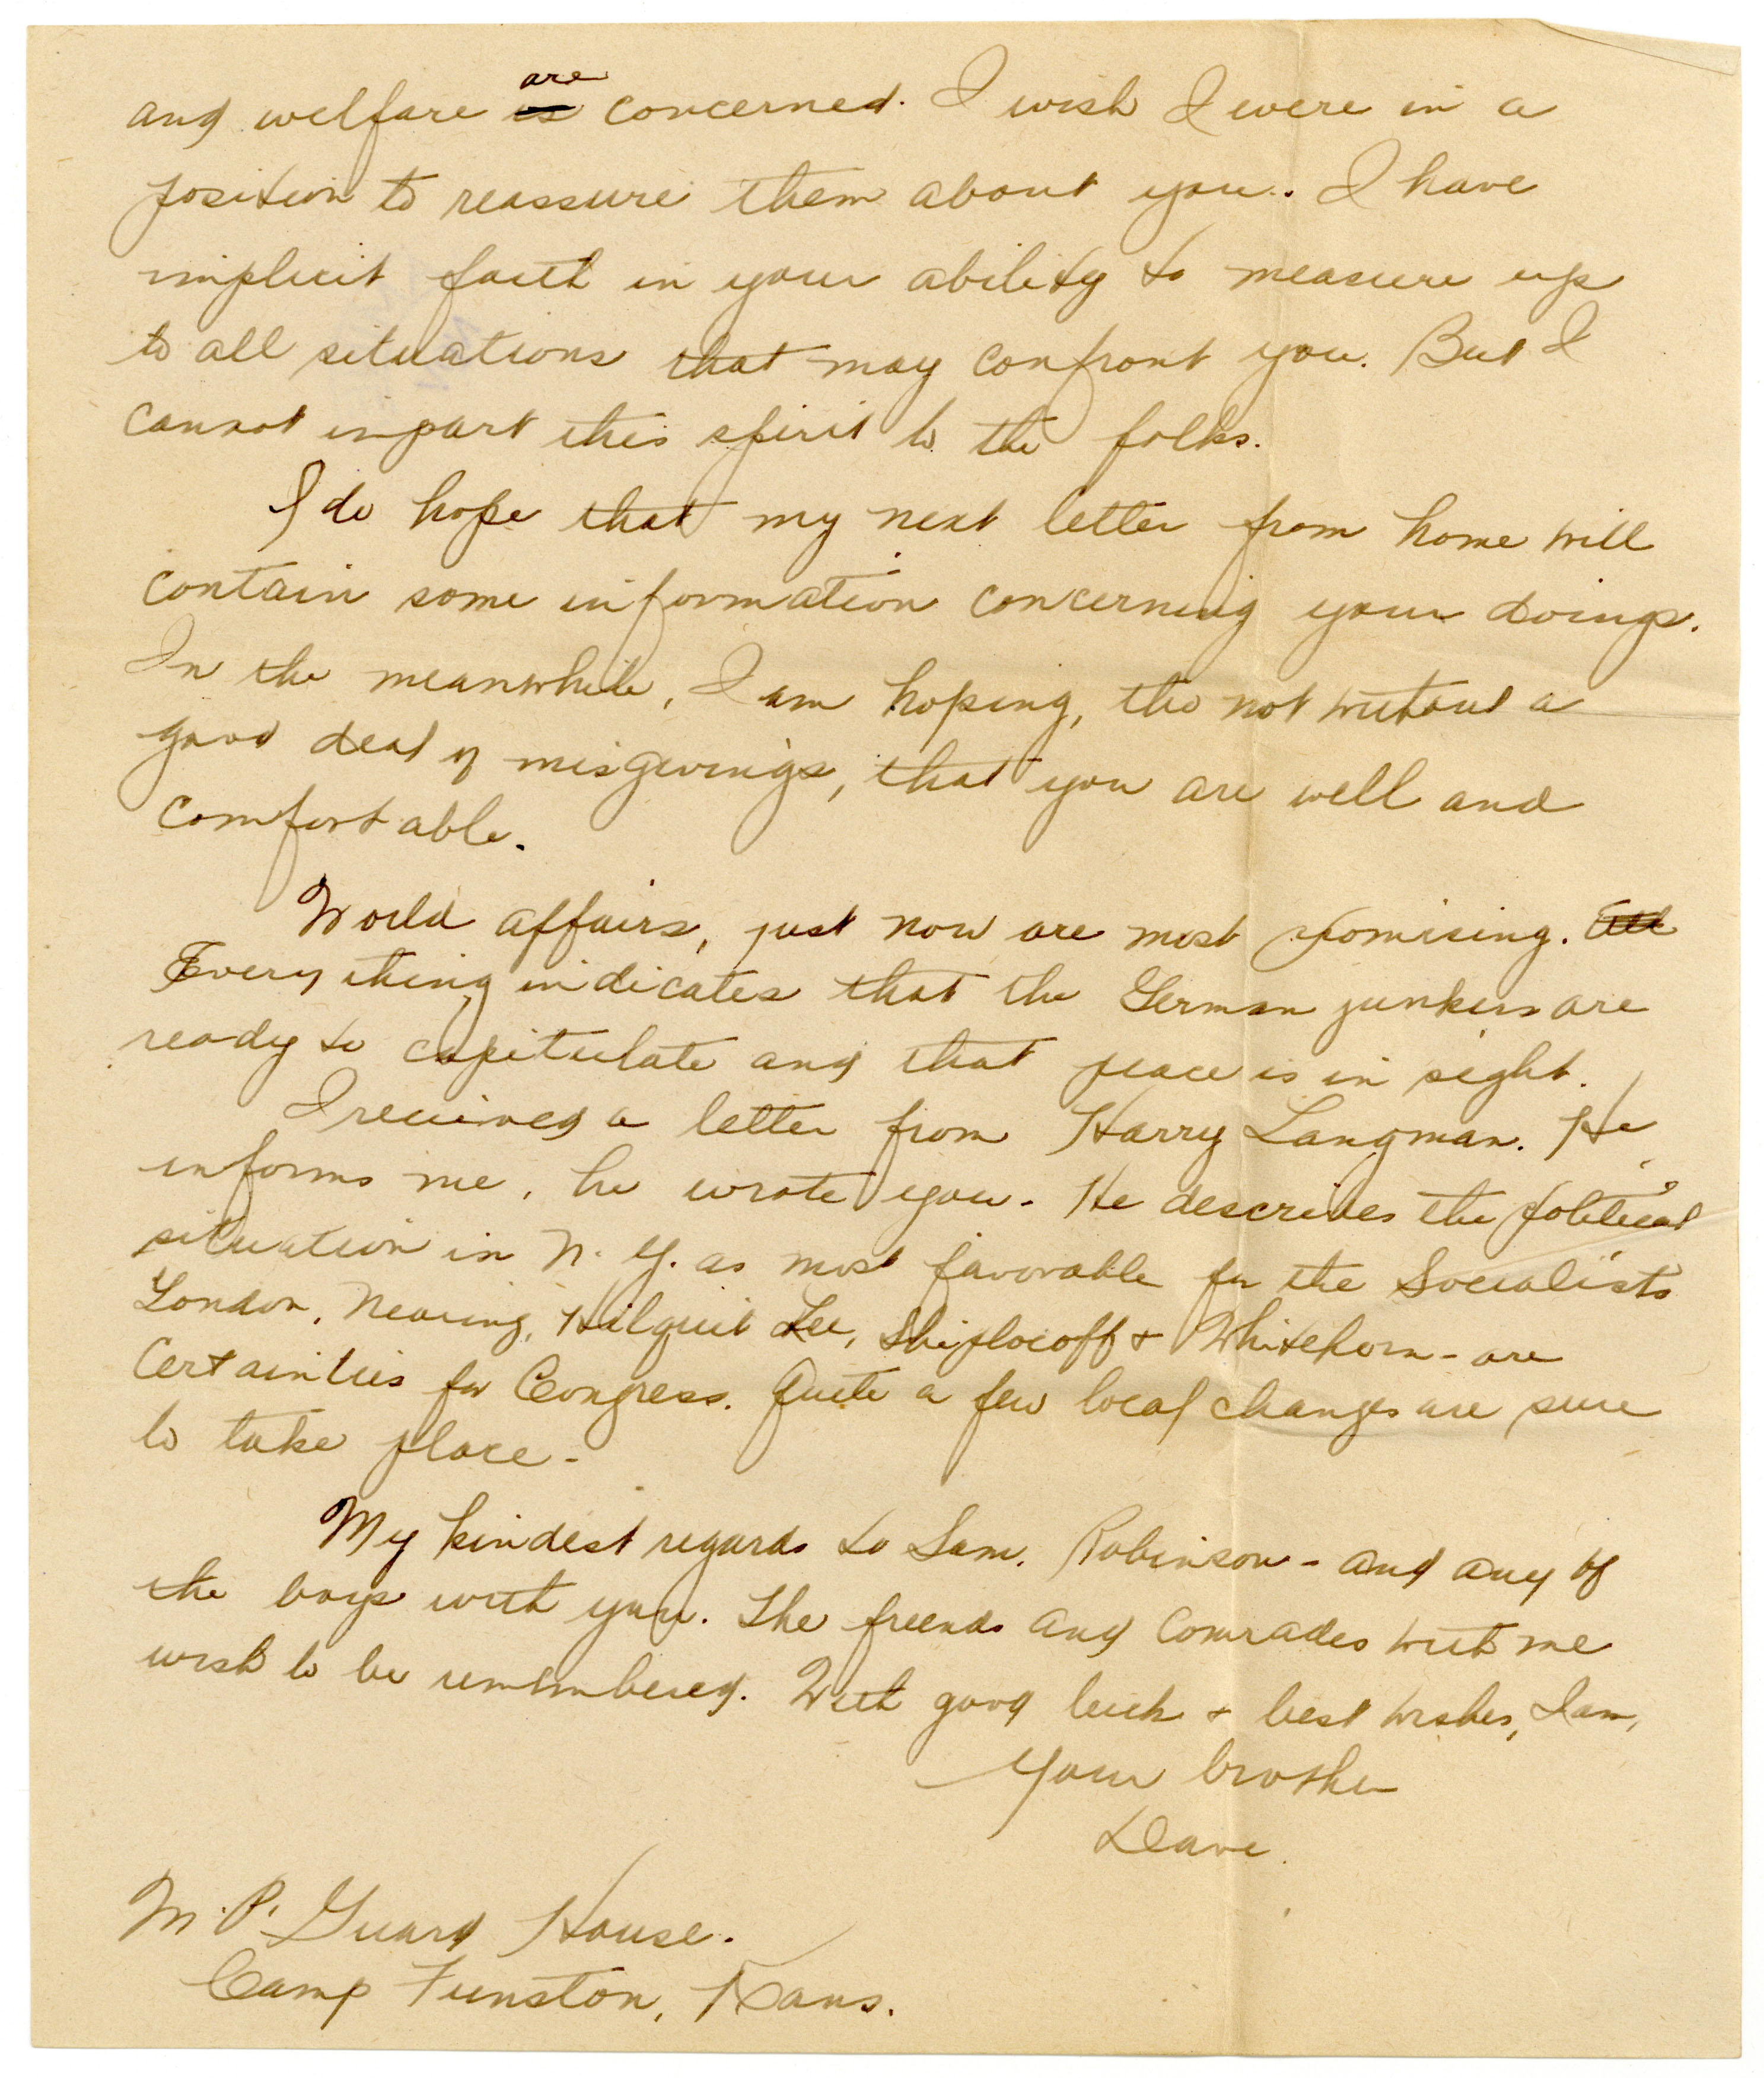 and welfare is are concerned. I wish I were in a
position to reassure them about you. I have
implicit faith in your ability to measure up
to all situations that may confront you. But I
cannot impart this spirit to the folks.
I do hope that my next letter from home will
contain some information concerning your doings.
In the meanwhile, I am hoping, tho not without a
good deal of misgivings, that you are well and
comfortable.
World affairs, just now are most promising.
Everything indicates that the German junkers are
ready to capitulate and that peace is in sight.
I received a letter from Harry Langman. He
informs me, he wrote you. He describes the political
situation in N. Y. as most favorable for the Socialists
London, Nearing, Hilquit Lee, Shiplacoff & Whitehorn - are
Certainties for Congress. Quite a few local changes are sure
to take place.
My kindest regards to Sam. Robinson - and any of
the boys with you. The friends and Comrades with me
wish to be remembered. With good luck & best wishes, I am,
Your brother
Dave.
M. P. Guard House.
Camp Funston, Kans.